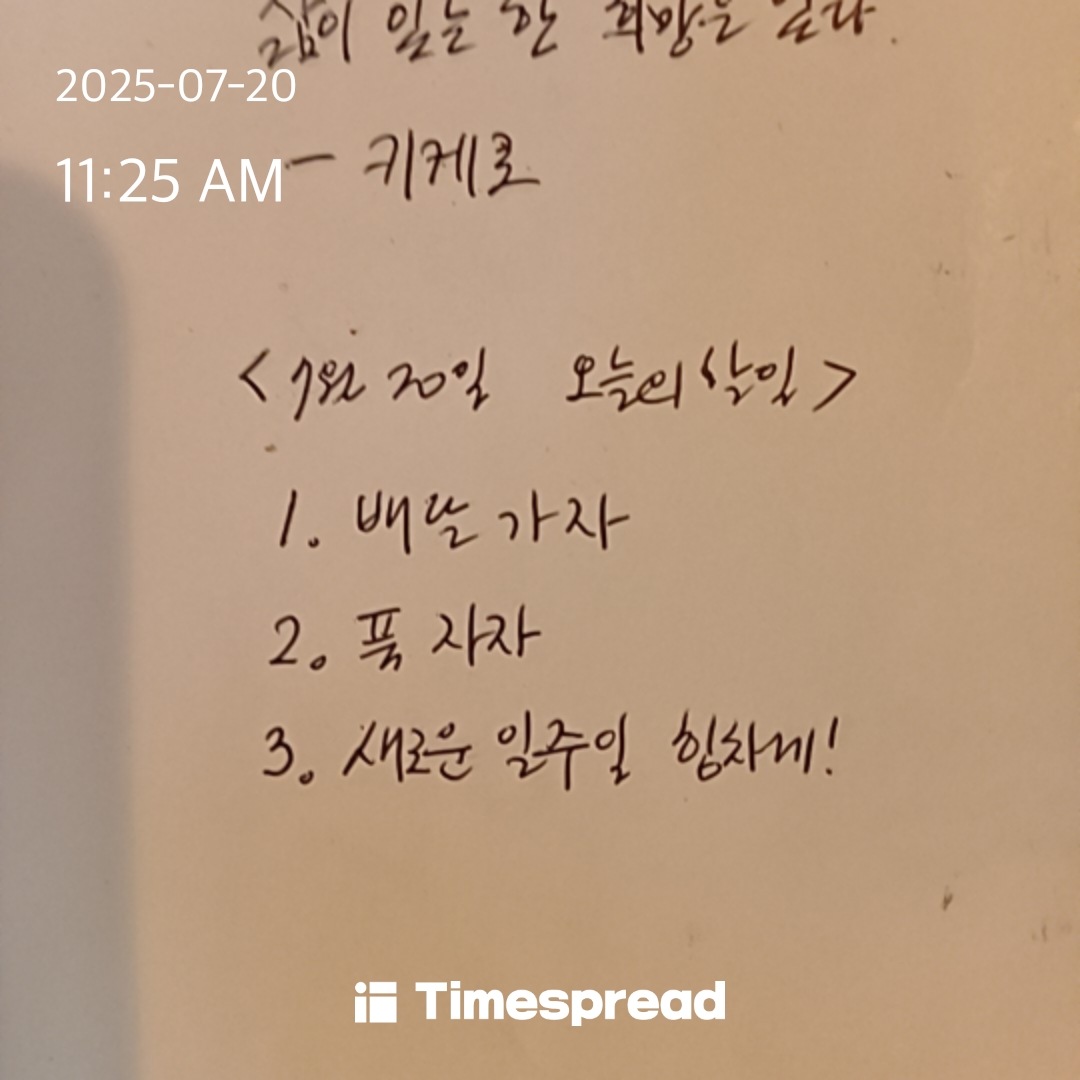 삶이 있는 한 희망은 있다.
2025-07-20
11:25 AM
- 키케로
<7월 20일 오늘의 할일>
1. 배달 가자
2. 푹 자자
3. 새로운 일주일 힘차게!
Timespread